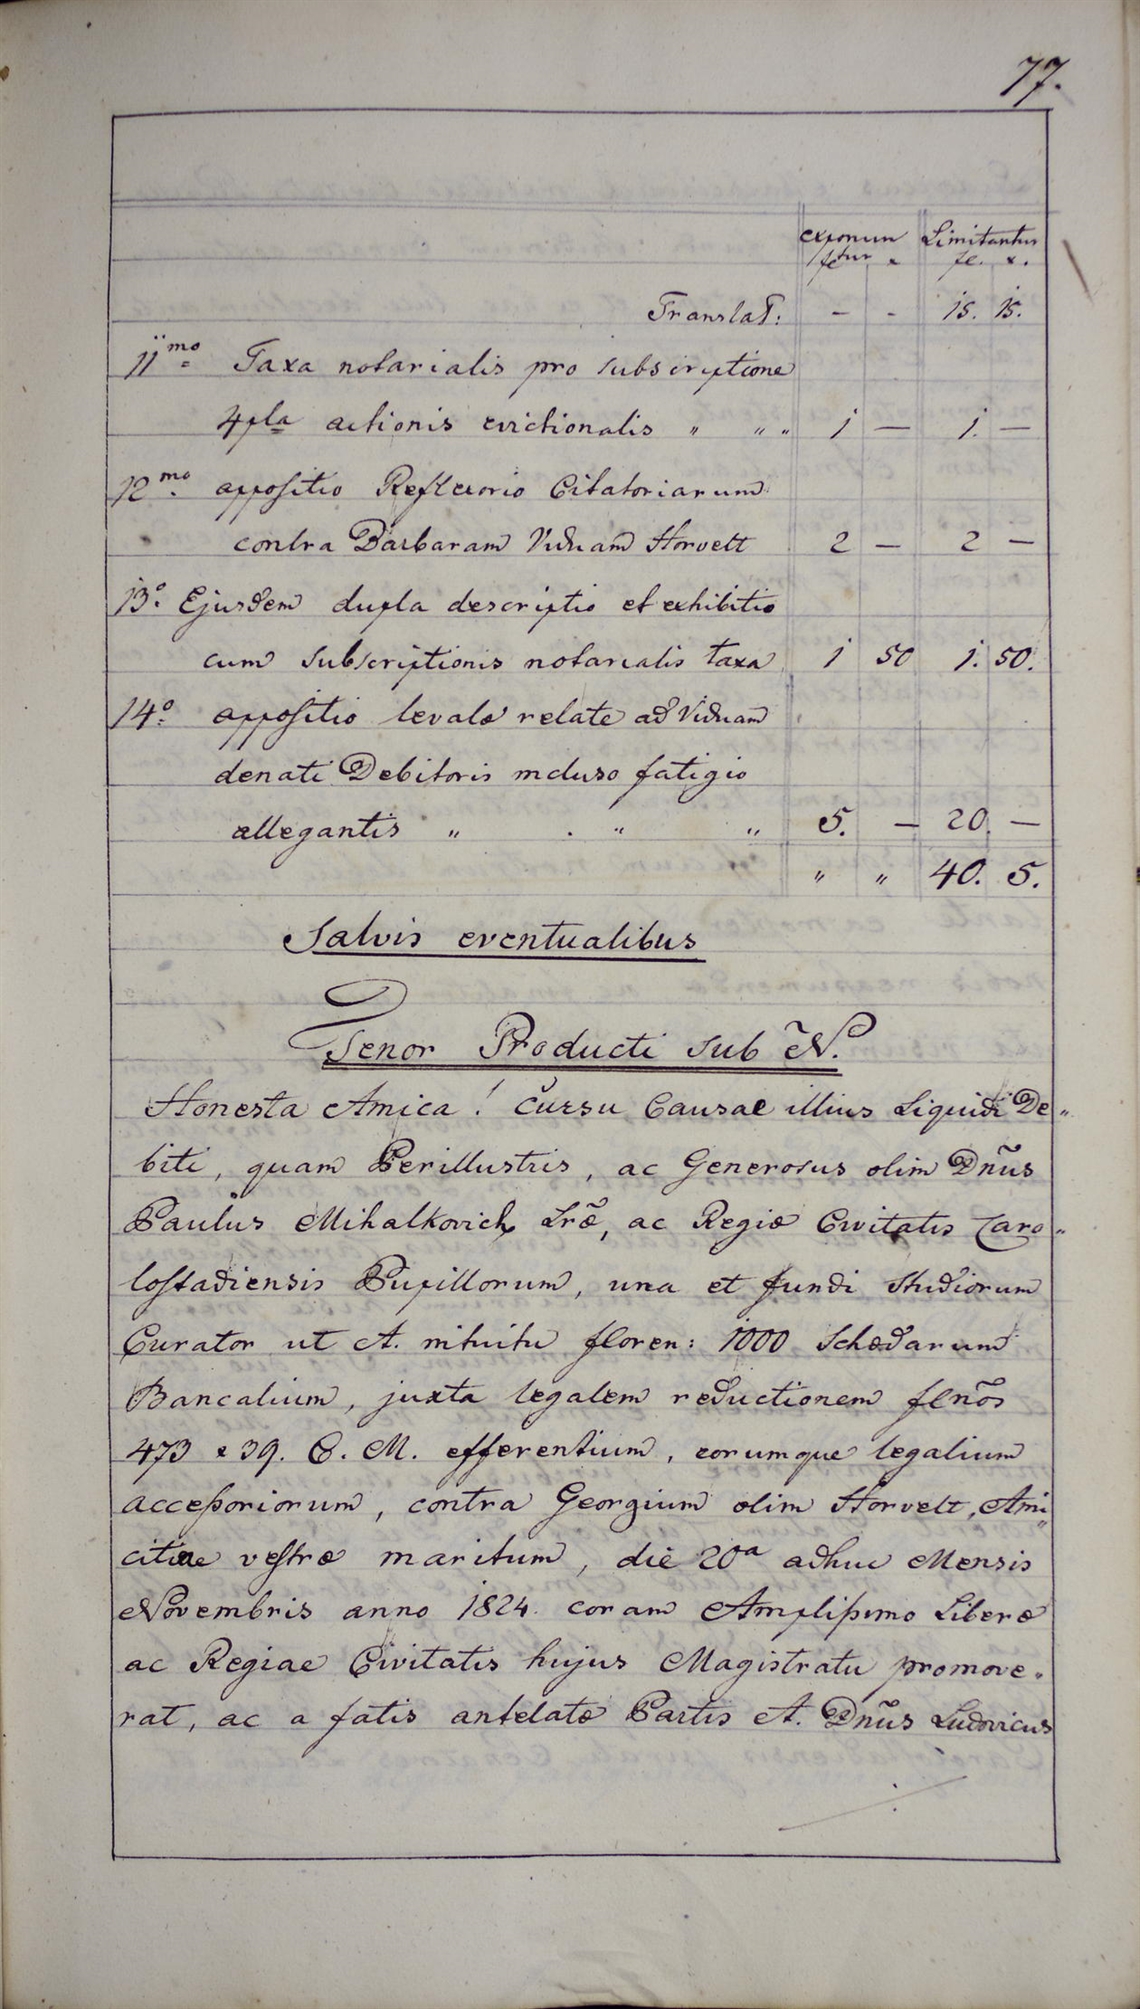 77.
exponun Limitantur
fl tur x fl. x.
Translat: - - 15. 15.
11mo Taxa notarialis pro subscriptione
4pla actionis evictionalis " " " 1 — 1. —
12mo appositio Reflexorio Citatoriarum
contra Barbaram Viduam Horvett 2 — 2 —
13o. Ejusdem dupla descriptio et exhibitio
cum subscriptionis notarialis taxa 1 50 1. 50.
14o. appositio levatæ relate ad Viduam
denati Debitoris incluso fatigio
allegantis " . " " 5. — 20. —
" " 40. 5.
Salvis eventualibus
Tenor Producti sub Ñ.
Honesta Amica! Cursu Causae illius Liquidi De„
biti, quam Perillustris, ac Generosus olim Dñus
Paulus Mihalkovich Lræ, ac Regiæ Civitatis Caro„
lostadiensis Pupillorum, una et fundi Studiorum
Curator ut A. intuitu floren: 1000 Schedarum
Bancalium, juxta legalem reductionem flños
473 x 39. C. M. efferentium, eorumque legalium
accessoriorum, contra Georgium olim Horvelt, Ami„
citiae vestræ maritum, die 20a adhuc Mensis
Novembris anno 1824. coram Amplissimo Liberæ
ac Regiae Civitatis hujus Magistratu promove„
rat, ac a fatis antelatæ Partis A. Dñus Ludovicus
./.